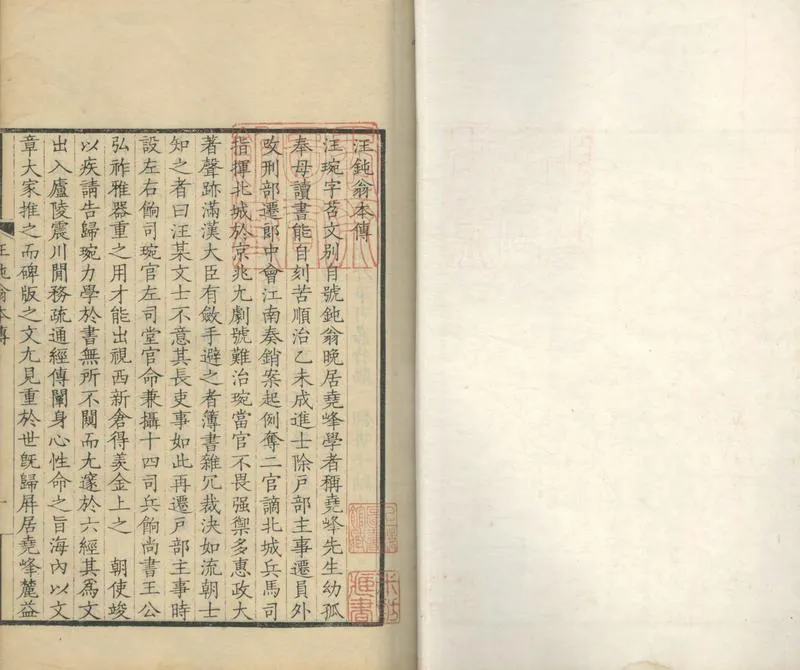 汪鈍翁本傳
汪琬字苕文別自號鈍翁晚居堯峰學者稱堯峰先生幼孤
奉母讀書能自刻苦順治乙未成進士除戶部主事遷員外
改刑部遷郎中會江南奏銷案起例奪二官謫北城兵馬司
指揮北城於京兆尢劇號難治琬當官不畏强禦多惠政大
著聲跡滿漢大臣有斂手避之者簿書雜冗裁決如流朝士
知之者曰汪某文士不意其長吏事如此再遷戶部主事時
設左右餉司琬官左司堂官命兼攝十四司兵餉尚書王公
弘祚雅器重之用才能出視西新倉得羡金上之　朝使竣
以疾請告歸琬力學於書無所不闚而尢邃於六經其爲文
出入廬陵震川閒務疏通經傳闡身心性命之旨海內以文
章大家推之而碑版之文尢見重於世旣歸屛居堯峰麓益
汪鈍翁本傳
一